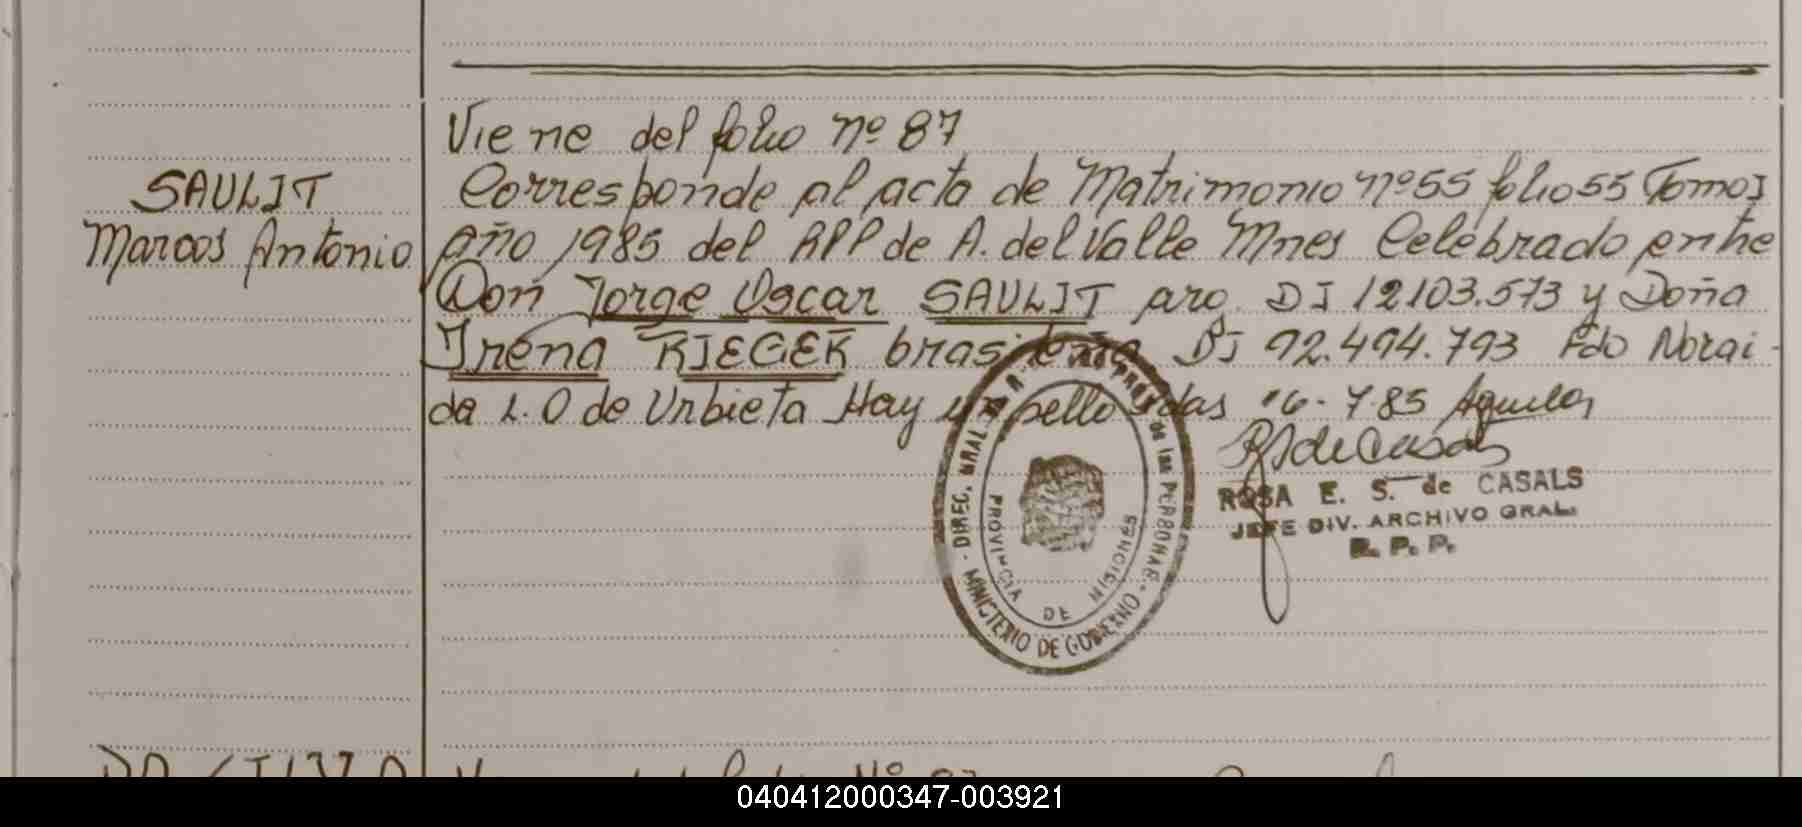 Viene del folio Nº 87
SAULIT
Marcos Antonio
Corresponde al acta de Matrimonio nº 55 folio 55 Tomo I
año 1985 del RPP de A. del Valle Mnes Celebrado entre
Don Jorge Oscar SAULIT arg. DI 12.103.573 y Doña
Irena RIEGER brasileña DI 92.494.793 Fdo Norai-
da L. O de Urbieta Hay un sello Pdas 16-7-85 Aguilar
RSdeCasals
ROSA E. S. de CASALS
JEFE DIV. ARCHIVO GRAL.
R. P. P.
DIREC. GRAL de las PERSONAS
PROVINCIA DE MISIONES
MINISTERIO DE GOBIERNO
040412000347-003921